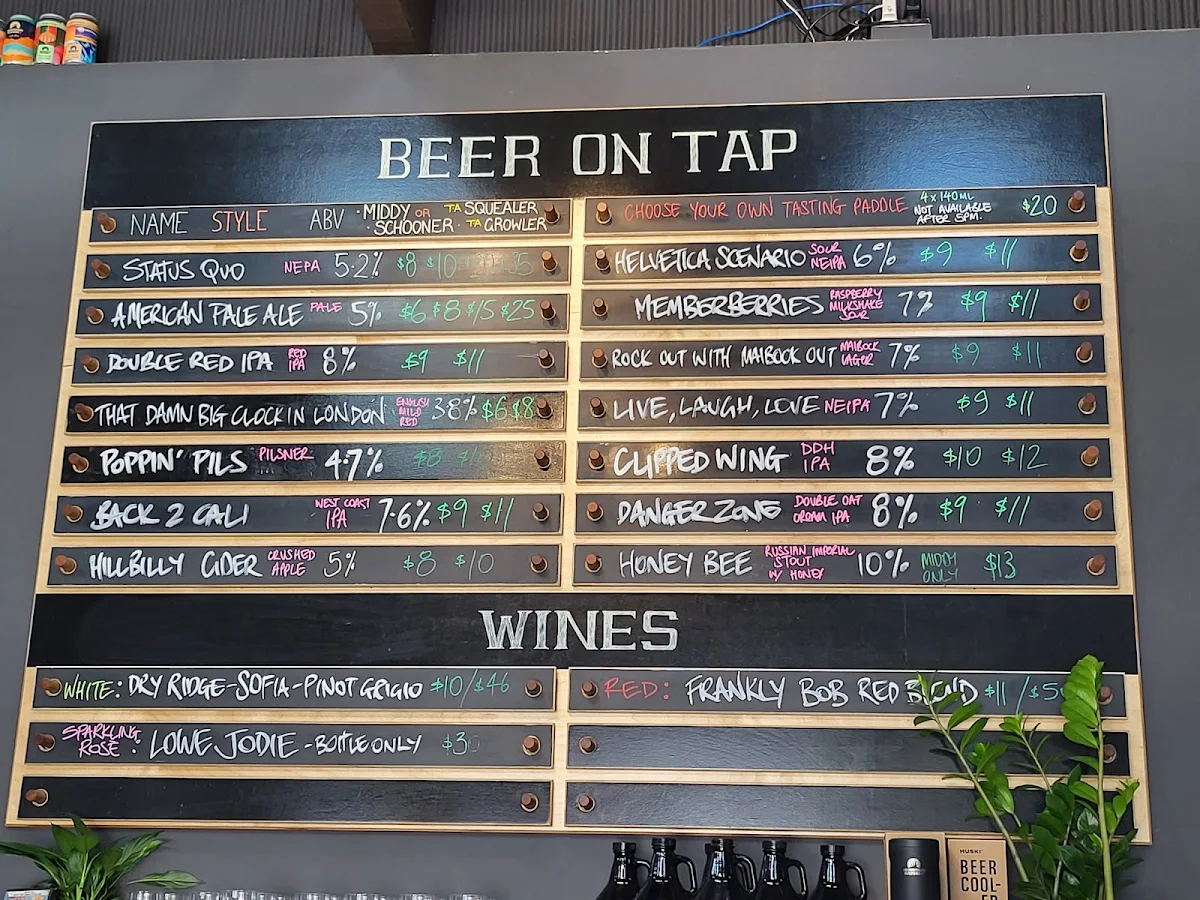 BEER ON TAP
NAME STYLE ABV · MIDDY OR TA SQUEALER
· SCHOONER · TA GROWLER
STATUS QUO NEPA 5.2% $8 $10
AMERICAN PALE ALE PALE 5% $6 $8 $15 $25
DOUBLE RED IPA RED IPA 8% $9 $11
THAT DAMN BIG CLOCK IN LONDON ENGLISH MILD RED 3.8% $6 $8
POPPIN' PILS PILSNER 4.7% $8
BACK 2 CALI WEST COAST IPA 7.6% $9 $11
HILLBILLY CIDER CRUSHED APPLE 5% $8 $10
CHOOSE YOUR OWN TASTING PADDLE 4 x 140ML NOT AVAILABLE AFTER 5PM. $20
HELVETICA SCENARIO SOUR NEIPA 6% $9 $11
MEMBERBERRIES RASPBERRY MILKSHAKE SOUR 7% $9 $11
ROCK OUT WITH MAIBOCK OUT MAIBOCK LAGER 7% $9 $11
LIVE, LAUGH, LOVE NEIPA 7% $9 $11
CLIPPED WING DDH IPA 8% $10 $12
DANGER ZONE DOUBLE OAT CREAM IPA 8% $9 $11
HONEY BEE RUSSIAN IMPERIAL STOUT W/ HONEY 10% MIDDY ONLY $13
WINES
WHITE: DRY RIDGE-SOFIA-PINOT GRIGIO $10/$46
SPARKLING ROSE: LOWE JODIE - BOTTLE ONLY
RED: FRANKLY BOB RED BLEND $11
HUSKI
BEER
COOL-
ER